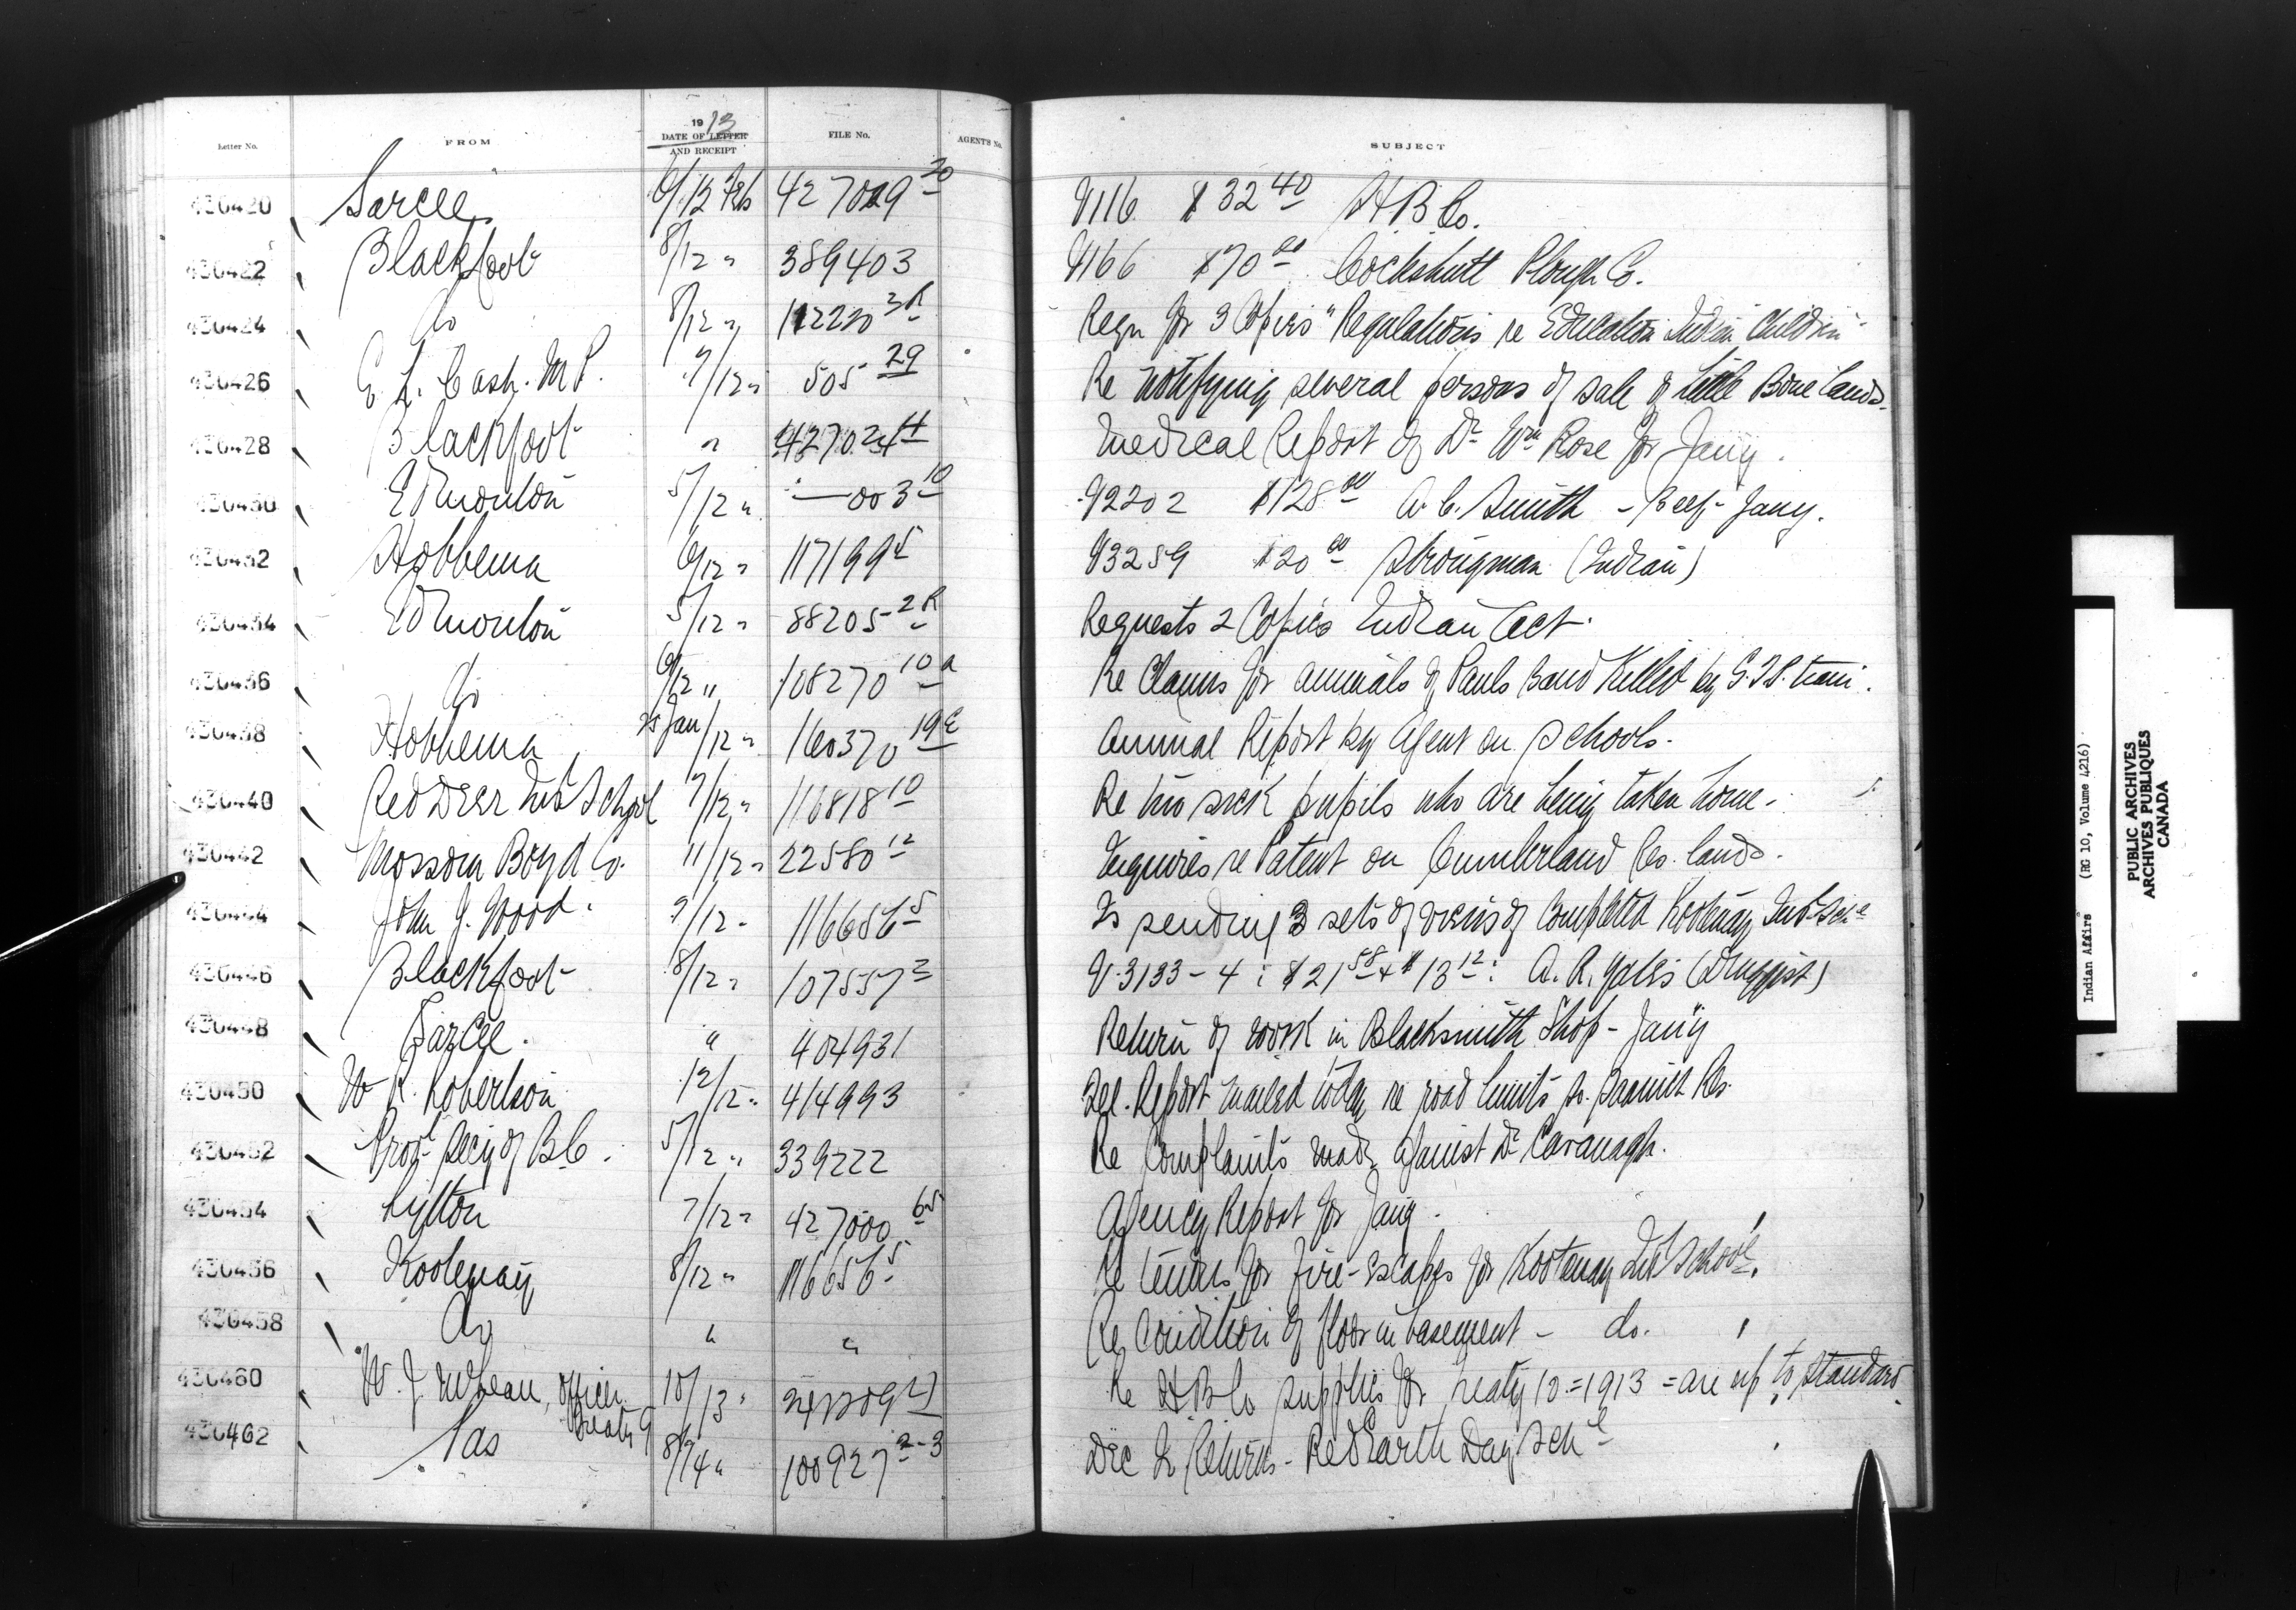 Letter No. FROM 1913 DATE OF LETTER AND RECEIPT FILE No. AGENT'S No. SUBJECT
430420 Sarcee 6/12 Feb 427029 20 V116 $32 40 H B Co.
430422 Blackfoot 8/12 " 389403 V166 $70 00 Cockshutt Plough Co.
430424 do 8/12 " 112220 3R Reqn for 3 Copies "Regulations re Education Indian Children"
430426 E. L. Cash. M P. 7/12 " 505 29 Re notifying several persons of sale of Little Bone lands.
430428 Blackfoot " 427024 4 Medical Report of Dr Wm Rose for Jany.
430430 Edmonton 5/12 " " — 003 10 V2202 $128 00 A. C. Smith - Beef - Jany.
430432 Hobbema 6/12 " 117199 5 V3259 $20 00 Strongman (Indian)
430434 Edmonton 5/12 " 88205 2R Requests 2 Copies Indian Act.
430436 do 6/12 " 108270 10a Re Claims for animals of Pauls Band Killed by G.T.P. train.
430438 Hobbema 25 Jan/12 " 160370 19E Annual Report by Agent on Schools.
430440 Red Deer Ind School 7/12 " 116818 10 Re two sick pupils who are being taken home.
430442 Mossom Boyd Co. 11/12 " 22580 12 Inquires re Patent on Cumberland Res. lands.
430444 John J. Wood. 7/12 " 116656 5 Is sending 3 sets of views of Completed Kootenay Ind Schl
430446 Blackfoot 8/12 " 107557 2 V.3133-4: $21 58 & $13 12: A. R. Yates (Druggist)
430448 Sarcee. " 404931 Return of work in Blacksmith Shop - Jany
430450 W R. Robertson 12/12 " 414993 Tel. Report mailed today re road limits So. Saanich Res.
430452 Prov. Secy of B.C. 5/12 " 339222 Re Complaints made against Dr Cavanagh.
430454 Lytton 7/12 " 427000 65 Agency Report for Jany.
430456 Kootenay 8/12 " 116656 5 Re tenders for fire-escapes for Kootenay Ind School.
430458 do " " Re Condition of floor in basement - do.
430460 W. J. McLean, officer Treaty 9 10/13 " Re H B Co supplies for Treaty 10 = 1913 = are up to standard
430462 Pas 8/14 " 100927 2-3 Dec Qr Returns - Red Earth Day Schl
Indian Affairs (RG 10, Volume 4216)
PUBLIC ARCHIVES
ARCHIVES PUBLIQUES
CANADA